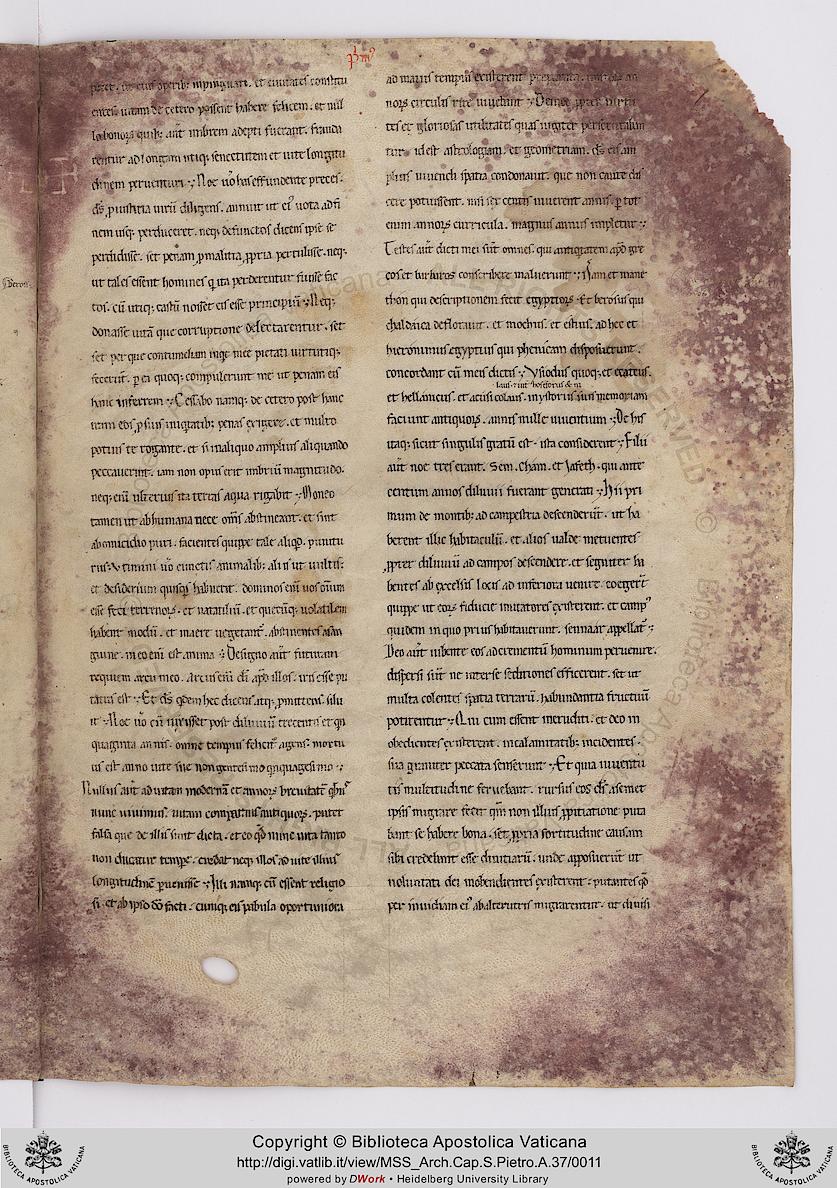 p̄m⁹
eius operib; inpinguari. et ciuitates constitu
entes uitam de cetero possent habere felicem. et nul
lo bonorȝ quib; aut̄ imbrem adepti fuerant. frauda
rentur ad longam utiq; senectutem et uite longitu
dinem peruenturi. Noe ū̓o has effundente preces.
dс̄ ꝓ iusticia uirū diligens. annuit ut ei⁹ uota ad fi
nem usq; perduceret. neq; defunctos dicens ipse se
perdidisse. set penam ꝓ malitia ꝓpria pertulisse. neq;
ut tales essent homines q̓ ita perderentur fuisse fac
tos. cū utiq; castū noisset eis esse principiū. Neq;
donasse uitā que corruptione delectarentur. set
set per que contumeliam inqͥt mee pietati uirtutiq;
fecer̄t. ꝑ ea quoq; compulerunt me ut penam eis
hanc inferrem. Cessabo namq; de cetero post hanc
iram eos ꝓ suis iniqͥtatib; penas exigere. et multo
potius te rogante. et si in aliquo amplius aliquando
peccauerint. iam non opus erit imbriū magnitudo.
neq; enī ulterius ita terras aqua rigabit. Moneo
tamen ut ab humana nece om̄s abstineant. et sint
ab omicidio puri. facientes quippe tale aliqͥd. punitu
rus. Utimini ū̓o cunctis animalib; aliis ut uultis.
et desiderium quisq; habuerit. dominos enī uos om̄ium
esse feci terrenorȝ. et natatiliū. et quecūq; uolatilem
habent modū. et in aere uegetant̄. abstinentes a san
guine. in eo enī est anima. Designo aut̄ futuram
requiem arcu meo. Arcus enī di apd̄ illos. iris esse pu
tatus est. Et dс̄ q̓dem hec dicens atq; ꝓmittens. silu
it. Noe ū̓o cū uixisset post diluuiū trecentis et q̓n
quaginta annis. omne tempus felicit̄ agens. mortu
us est anno uite sue nongentesimo qͥnquagesimo.
Nullus aut̄ ad uitam modernā et annorȝ breuitatē qͥbus
nunc uiuimus. uitam comparans antiquorȝ. putet
falsa que de illis sunt dicta. et eo qd̄ nunc uita tanto
non ducatur tempe. credat neq; illos ad uite illius
longitudinē ꝑuenisse. Illi namq; cū essent religio
si. et ab ipso dō facti. cumq; eis pabula oportuniora
ad maius tempus existerent preparata. tantorȝ an
norȝ circulis rite uiuebant. Deinde ꝓpter uirtu
tes et gloriosas utilitates quas iugiter perscrutaban
tur. id est astrologiam. et geometriam. dс̄ eis am
plius uiuendi spatia condonauit. que non caute dis
cere potuissent. nisi sex centis uiuerent annis. ꝑ tot
enim annorȝ curricula. magnus annus impletur.
Testes aut̄ dicti mei sunt omnes. qui antiqͥtatem apd̄ gre
cos et barbaros conscribere maluerunt. Nam et mane
thon qui descriptionem fecit egyptiorȝ. Et berosus qui
chaldaica deflorauit. et mochus. et estius. ad hec et
hieronimus egyptius qui phenicam disposuerunt.
concordant cū meis dictis. Usiodus quoq; et ecateus.
et hellanicus. et acusi colaus. in ystoriis suis memoriam
faciunt antiquorȝ. annis mille uiuentium. De his
itaq; sicut singulis gratū est. ita considerent. Filii
aut̄ noe tres erant. Sem. cham. et Iafeth. qui ante
centum annos diluuii fuerant generati. Hii pri
mum de montib; ad campestria descender̄t. ut ha
berent illic habitaculū. et alios ualde metuentes
ꝓpter diluuiū ad campos descendere. et segniter ha
bentes ab excelsis locis ad inferiora uenire. coegerūt
quippe ut eorȝ fiducie imitatores existerent. et camp⁹
quidem in quo prius habitauerunt. sennaar appellat̄.
Deo aut̄ iubente eos ad crementū hominum peruenire.
dispersi sūt ne inter se seditiones efficerent. set ut
multa colentes spatia terrarū. habundantia fructuū
potirentur. Qui cum essent ineruditi. et deo in
obedientes existerent. in calamitatib; incidentes.
sua grauiter peccata senserunt. Et quia iuuentu
tis multitudine feruebant. rursus eos dс̄. a semet
ipsis migrare fecit qm̄ non illius ꝓpitiatione puta
bant se habere bona. set ꝓpria fortitudine causam
sibi credebant esse diuitiarū. unde apposuerūt ut
uoluntati dei inobendientes existerent. putantes qd̄
per inuidiam ei⁹ ab alterutris migrarentur. ut diuisi
Copyright © Biblioteca Apostolica Vaticana
http://digi.vatlib.it/view/MSS_Arch.Cap.S.Pietro.A.37/0011
powered by DWork • Heidelberg University Library